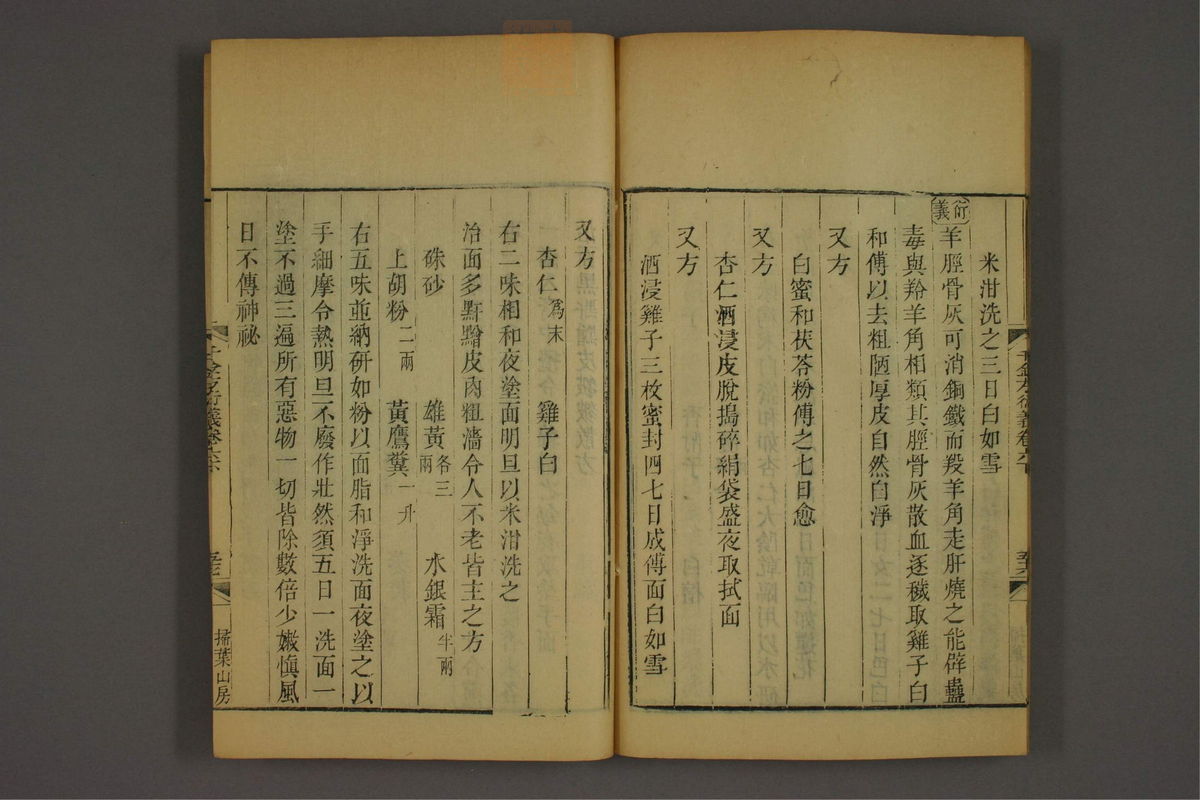 米泔洗之三日白如雪
衍義 羊脛骨灰可消銅鐵而羖羊角走肝燒之能辟蠱
毒與羚羊角相類其脛骨灰散血逐穢取雞子白
和傅以去粗陋厚皮自然白淨
又方
白蜜和茯苓粉傅之七日愈
又方
杏仁酒浸皮脫搗碎絹袋盛夜取拭面
又方
酒浸雞子三枚蜜封四七日成傅面白如雪
又方
杏仁爲末 雞子白
右二味相和夜塗面明旦以米泔洗之
治面多䵟䵳皮肉粗濇令人不老皆主之方
硃砂 雄黃各三兩 水銀霜半兩
上胡粉二兩 黃鷹糞一升
右五味並納研如粉以面脂和淨洗面夜塗之以
手細摩令熱明旦不廢作壯然須五日一洗面一
塗不過三遍所有惡物一切皆除數倍少嫩愼風
日不傳神祕
千金方衍義卷六下
掃葉山房